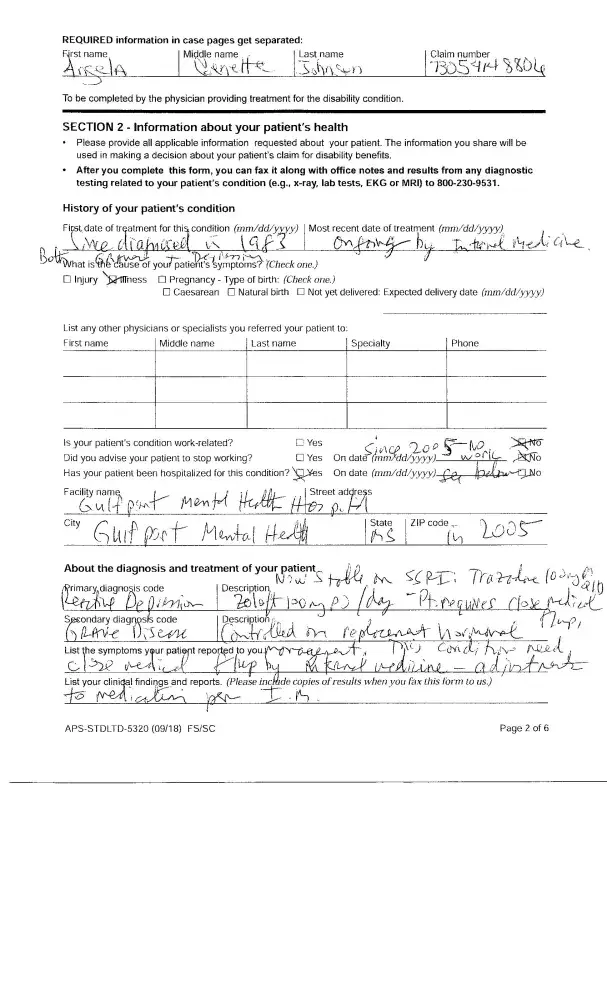 REQUIRED information in case pages get separated:
First name Middle name Last name Claim number
Angela Johnson
To be completed by the physician providing treatment for the disability condition.
SECTION 2 - Information about your patient's health
• Please provide all applicable information requested about your patient. The information you share will be
used in making a decision about your patient's claim for disability benefits.
• After you complete this form, you can fax it along with office notes and results from any diagnostic
testing related to your patient's condition (e.g., x-ray, lab tests, EKG or MRI) to 800-230-9531.
History of your patient's condition
First date of treatment for this condition (mm/dd/yyyy) Most recent date of treatment (mm/dd/yyyy)
Since diagnosed in 1983 Ongoing by Internal Medicine.
Both Graves + Depression
What is the cause of your patient's symptoms? (Check one.)
☐ Injury ☒ Illness ☐ Pregnancy - Type of birth: (Check one.)
☐ Caesarean ☐ Natural birth ☐ Not yet delivered: Expected delivery date (mm/dd/yyyy)
List any other physicians or specialists you referred your patient to:
First name Middle name Last name Specialty Phone
Is your patient's condition work-related? ☐ Yes ☒ No
Since 2005 - No
Did you advise your patient to stop working? ☐ Yes On date (mm/dd/yyyy) work ☒ No
Has your patient been hospitalized for this condition? ☒ Yes On date (mm/dd/yyyy) below ☐ No
Facility name Street address
Gulfport Mental Health
City State ZIP code
Gulfport Mental Health MS in 2005
About the diagnosis and treatment of your patient
Now Stable on SSRI: Trazodone 100mg
Primary diagnosis code Description
Depression Zoloft 100mg /day - Pt. requires close medical
Secondary diagnosis code Description
Grave Disease Controlled on replacement hormonal
List the symptoms your patient reported to you.
management. This condition need
close medical by internal medicine - adjustments
List your clinical findings and reports. (Please include copies of results when you fax this form to us.)
to medication per I.M.
APS-STDLTD-5320 (09/18) FS/SC Page 2 of 6